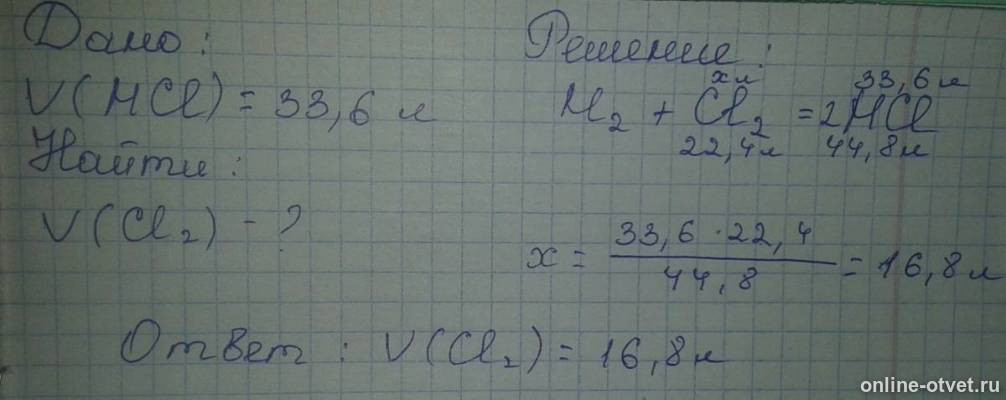 Дано:
V(HCl) = 33,6 л
Найти:
V(Cl₂) - ?
Решение:
x л 33,6 л
H₂ + Cl₂ = 2HCl
22,4 л 44,8 л
x = 33,6 · 22,4 / 44,8 = 16,8 л
Ответ: V(Cl₂) = 16,8 л
online-otvet.ru